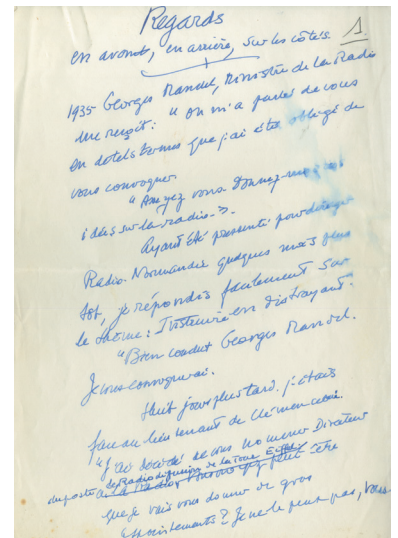 Regards
1
en avant, en arrière, sur les côtés.
1935 Georges Mandel, Ministre de la Radio
me reçoit: "On m'a parlé de vous
en de tels termes que j'ai été obligé de
vous convoquer
"Asseyez vous. Donnez-moi vos
idées sur la radio.
Ayant été pressenti pour diriger
Radio-Normandie quelques mois plus
tôt, je répondis facilement sur
le thème: Instruire en distrayant.
"Bien conclut Georges Mandel.
Je vous convoquerai.
Huit jours plus tard, j'étais
face au lieutenant de Clémenceau.
"J'ai décidé de vous nommer Directeur
de Radiodiffusion de la Tour Eiffel
du poste de la Radio peut être
que je vais vous donner de gros
appointements? Je ne le peux pas, vous